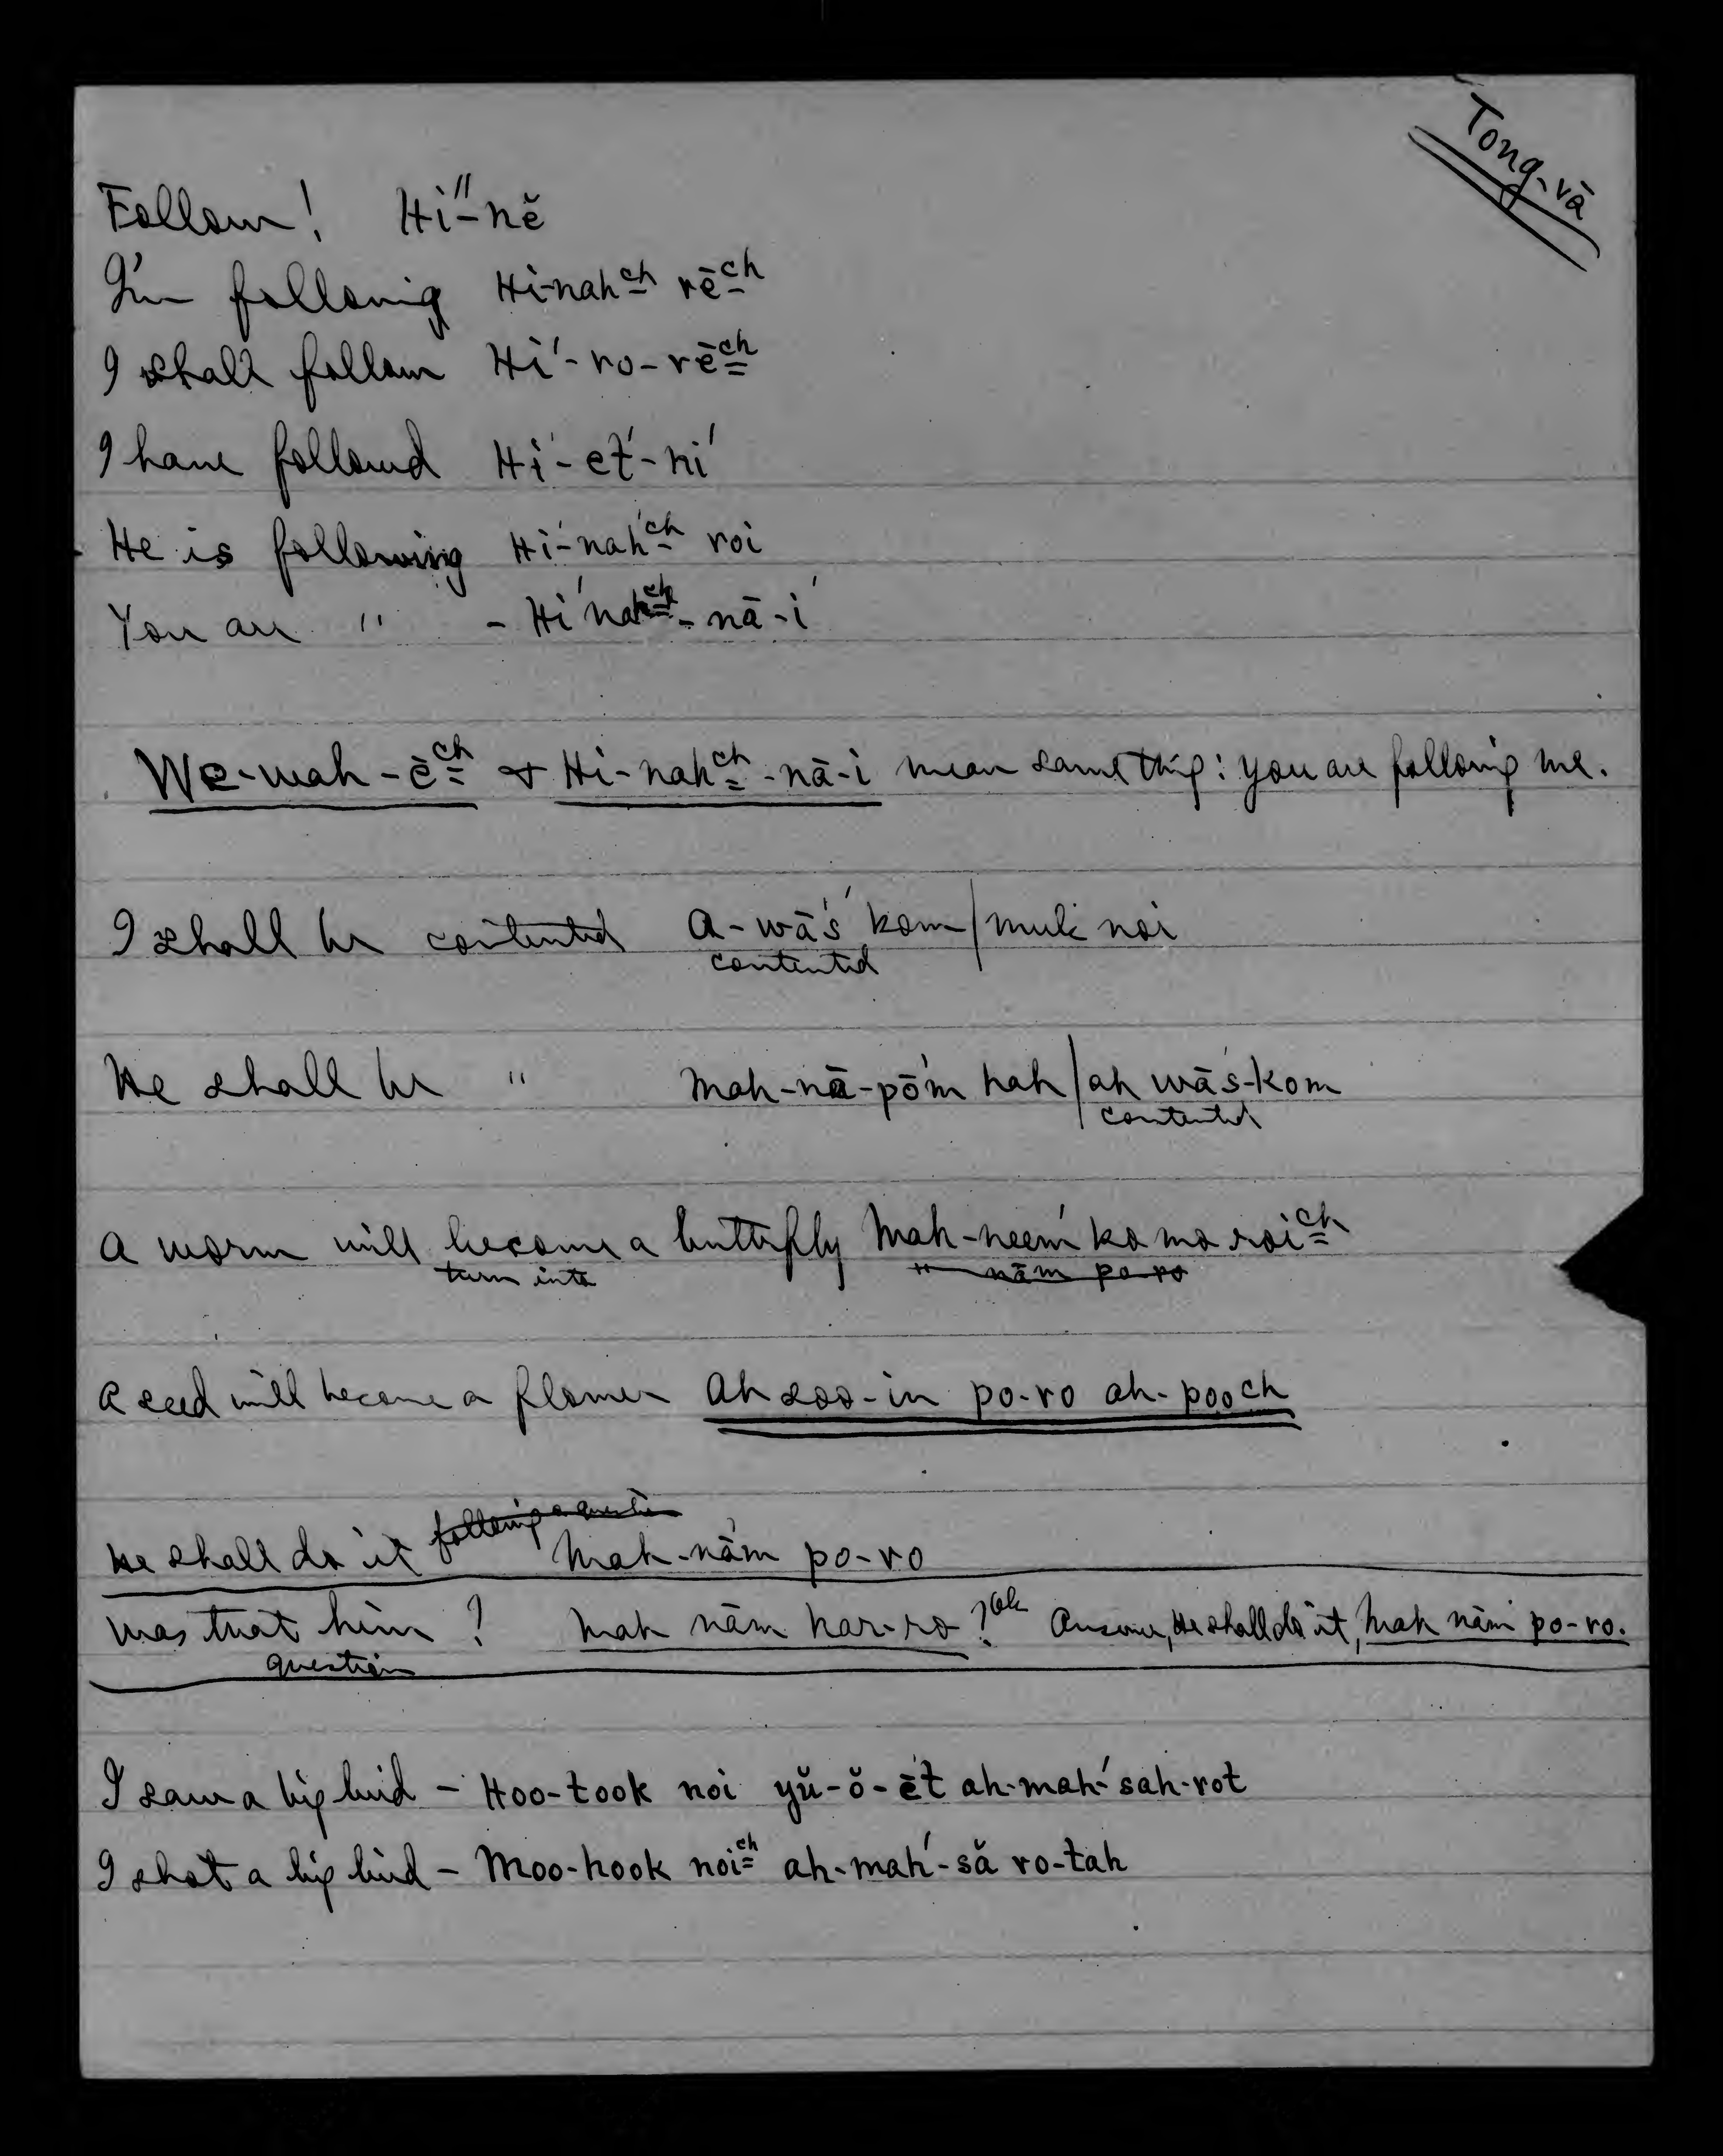 Tong-vā
Follow! Hī″-nĕ
I'm following Hi-nahch rēch
I shall follow Hī'-ro-rēch
I have followed Hī'-et'-ni'
He is following Hī'-nahch roi
You are " - Hī'nahch-nā-i'
We-wah-ēch & Hi-nahch-nā-i mean same thing: you are following me.
I shall be contented a-wās' kom/muk noi
contented
He shall be " mah-nā-pōm hah/ah wās-kom
contented
A worm will become a butterfly Mah-neem' ko mo roich
turn into " nām po-ro
A seed will become a flower Ah soo-in po-ro ah-pooch
following a question
He shall do it Mah-nām po-ro
Was that him? Mah nām har-ro? Answer, He shall do it, Mah nām po-ro.
question
I saw a big bird - Hoo-took noi yŭ-ŏ-ēt ah-mah'sah-rot
I shot a big bird - Moo-hook noich ah-mah'-să ro-tah